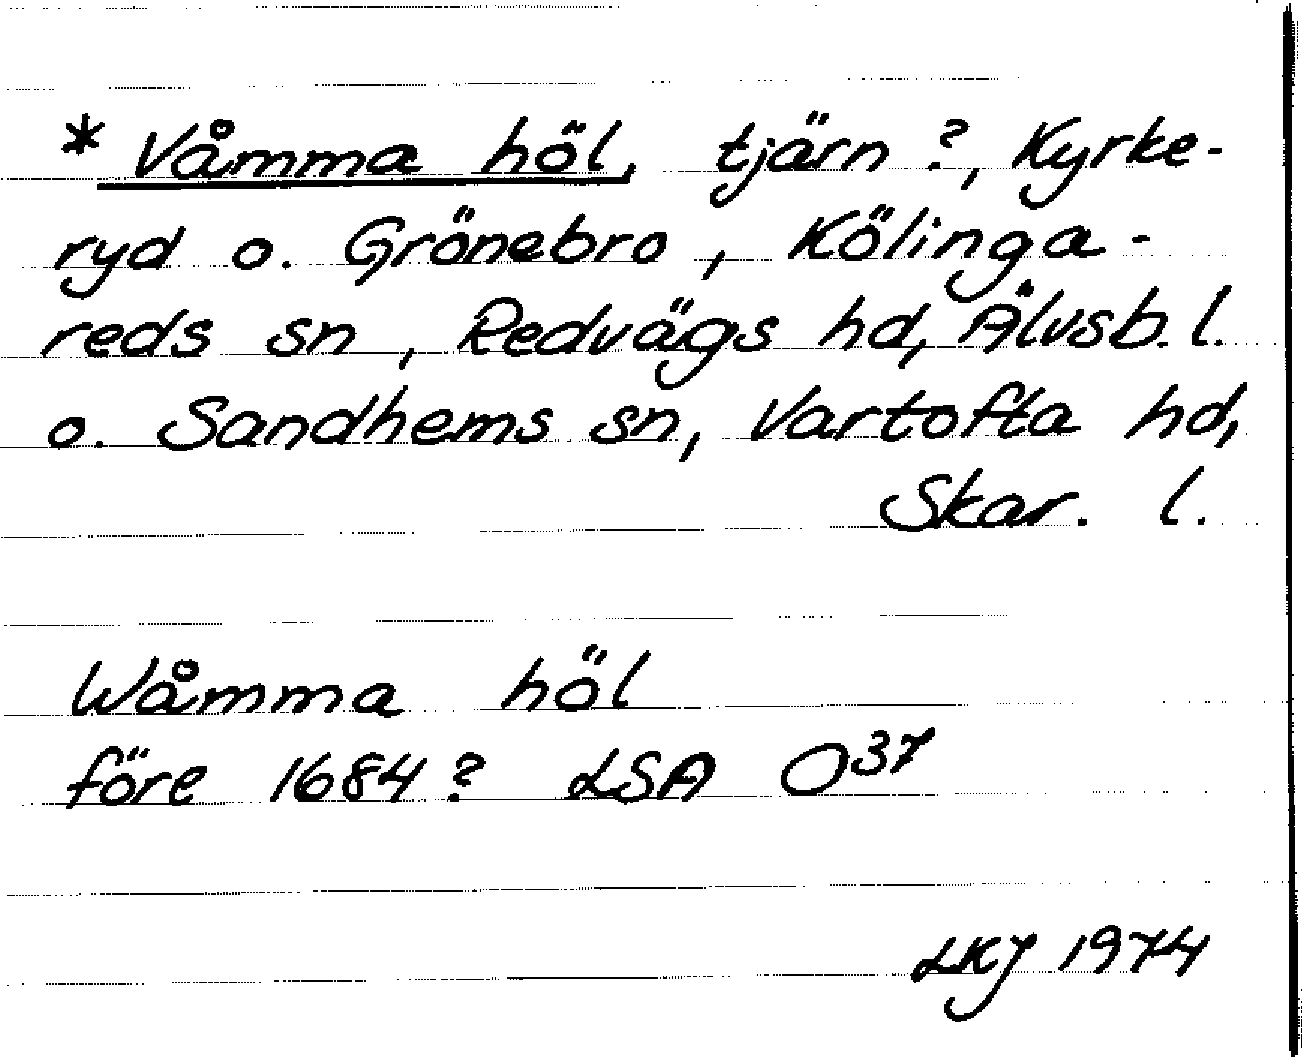 * Våmma höl, tjärn ?, Kyrke-
ryd o. Grönebro, Kölinga-
reds sn, Redvägs hd, Älvsb. l.
o. Sandhems sn, Vartofta hd,
Skar. l.
Wåmma höl
före 1684? LSA O³⁷
LKJ 1974